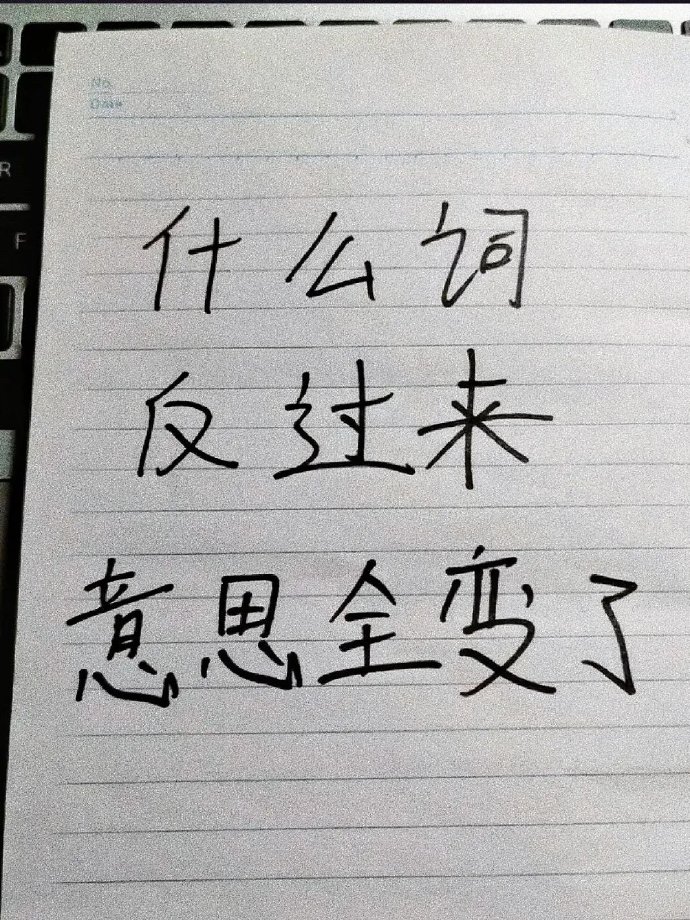 No
Date
R
F
什么词
反过来
意思全变了